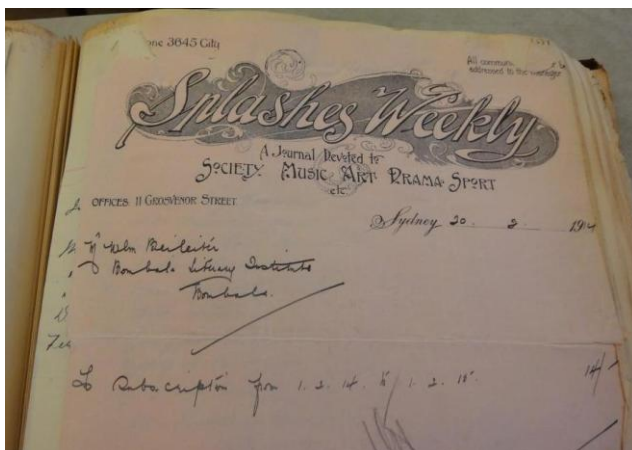 one 3645 City
All commun
addressed to the manager
Splashes Weekly
A Journal Devoted to
SOCIETY MUSIC ART DRAMA SPORT
etc
OFFICES 11 GROSVENOR STREET
Sydney 20 . 2 . 1914
Bombala Literary Institute
Bombala.
To Subscription from 1. 2. 14. to 1. 2. 15. 14/-